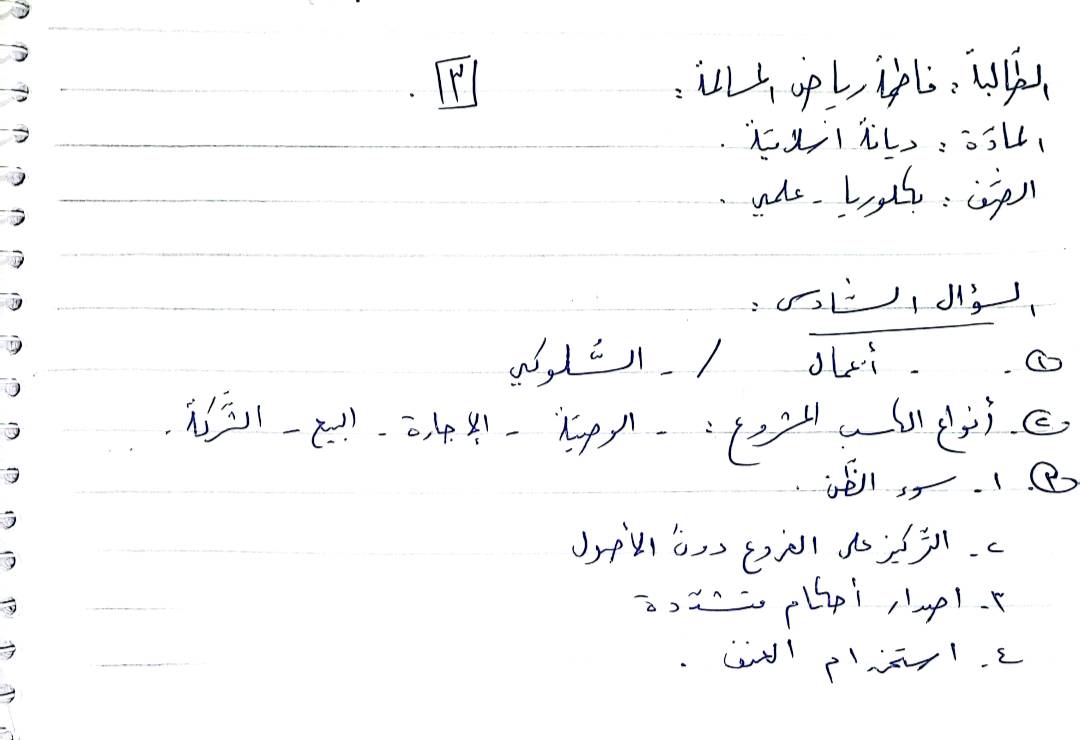 الطَّالبة : فاطمة رياض المسالمة : ٣
المادّة : ديانة اسلاميّة .
الصَّف : بكلوريا - علمي .
السؤال السَّادس :
١ - . أعمال / - السُّلوكي
٢ - أنواع الكسب المشروع : - الوصيّة - الإجارة - البيع - الشَّركة .
٣ - ١ - سوء الظَّن .
٢ - التَّركيز على الفروع دون الأصول
٣ - اصدار أحكام متشدّدة
٤ - استخدام العنف .